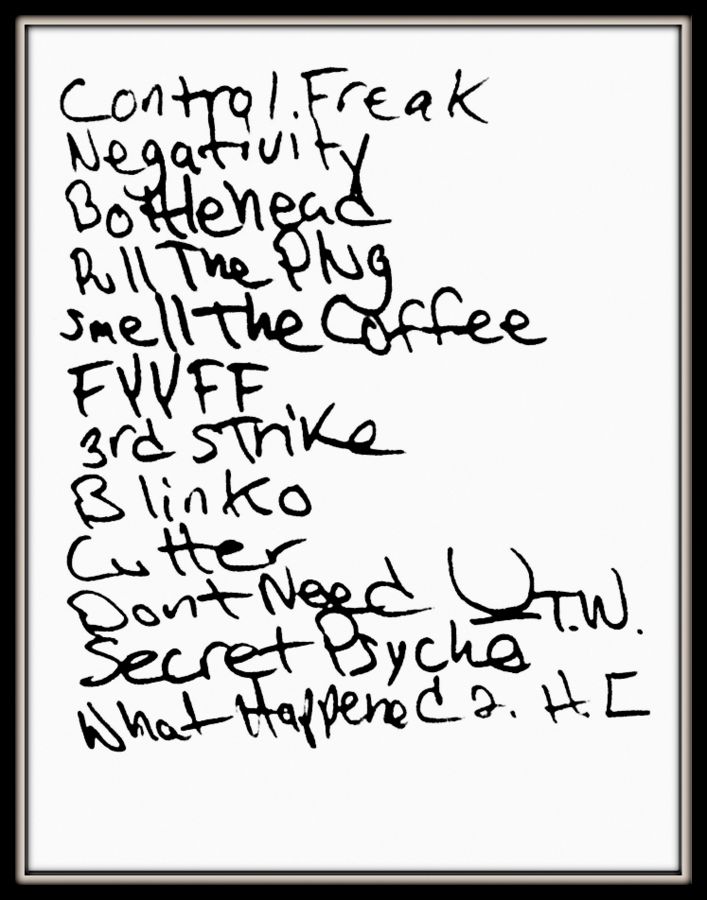 Control.Freak
Negativity
Bottlehead
Pull The Plug
Smell The Coffee
FYYFF
3rd strike
Blinko
Cutter
Dont Need U T.W.
Secret Psycho
What Happened 2. H.C